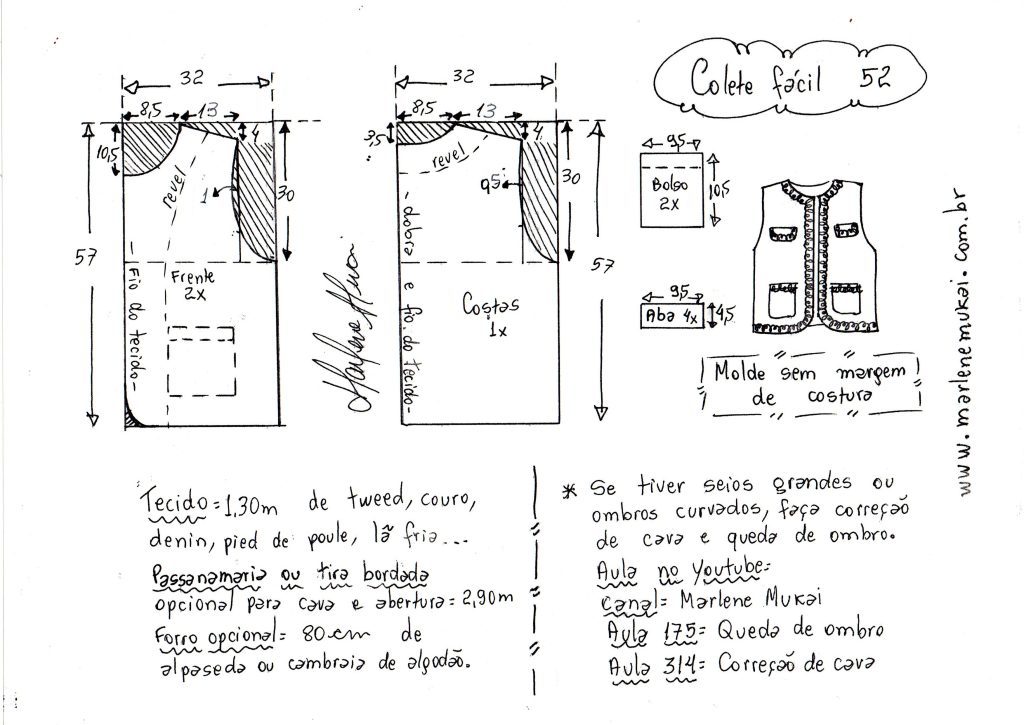 Colete fácil 52
32
8,5
13
4
10,5
revel
1
30
57
Fio do tecido
Frente
2x
32
8,5
13
3,5
4
revel
95
30
57
dobra e fio do tecido
Costas
1x
9,5
Bolso
2x
10,5
9,5
Aba 4x
4,5
Molde sem margem
de costura
www.marlenemukai.com.br
Tecido = 1,30m de tweed, couro,
denin, pied de poule, lã fria...
Passanamaria ou tira bordada
opcional para cava e abertura = 2,90m
Forro opcional = 80 cm de
alpaseda ou cambraia de algodão.
* Se tiver seios grandes ou
ombros curvados, faça correção
de cava e queda de ombro.
Aula no Youtube=
canal= Marlene Mukai
Aula 175= Queda de ombro
Aula 314= Correção de cava